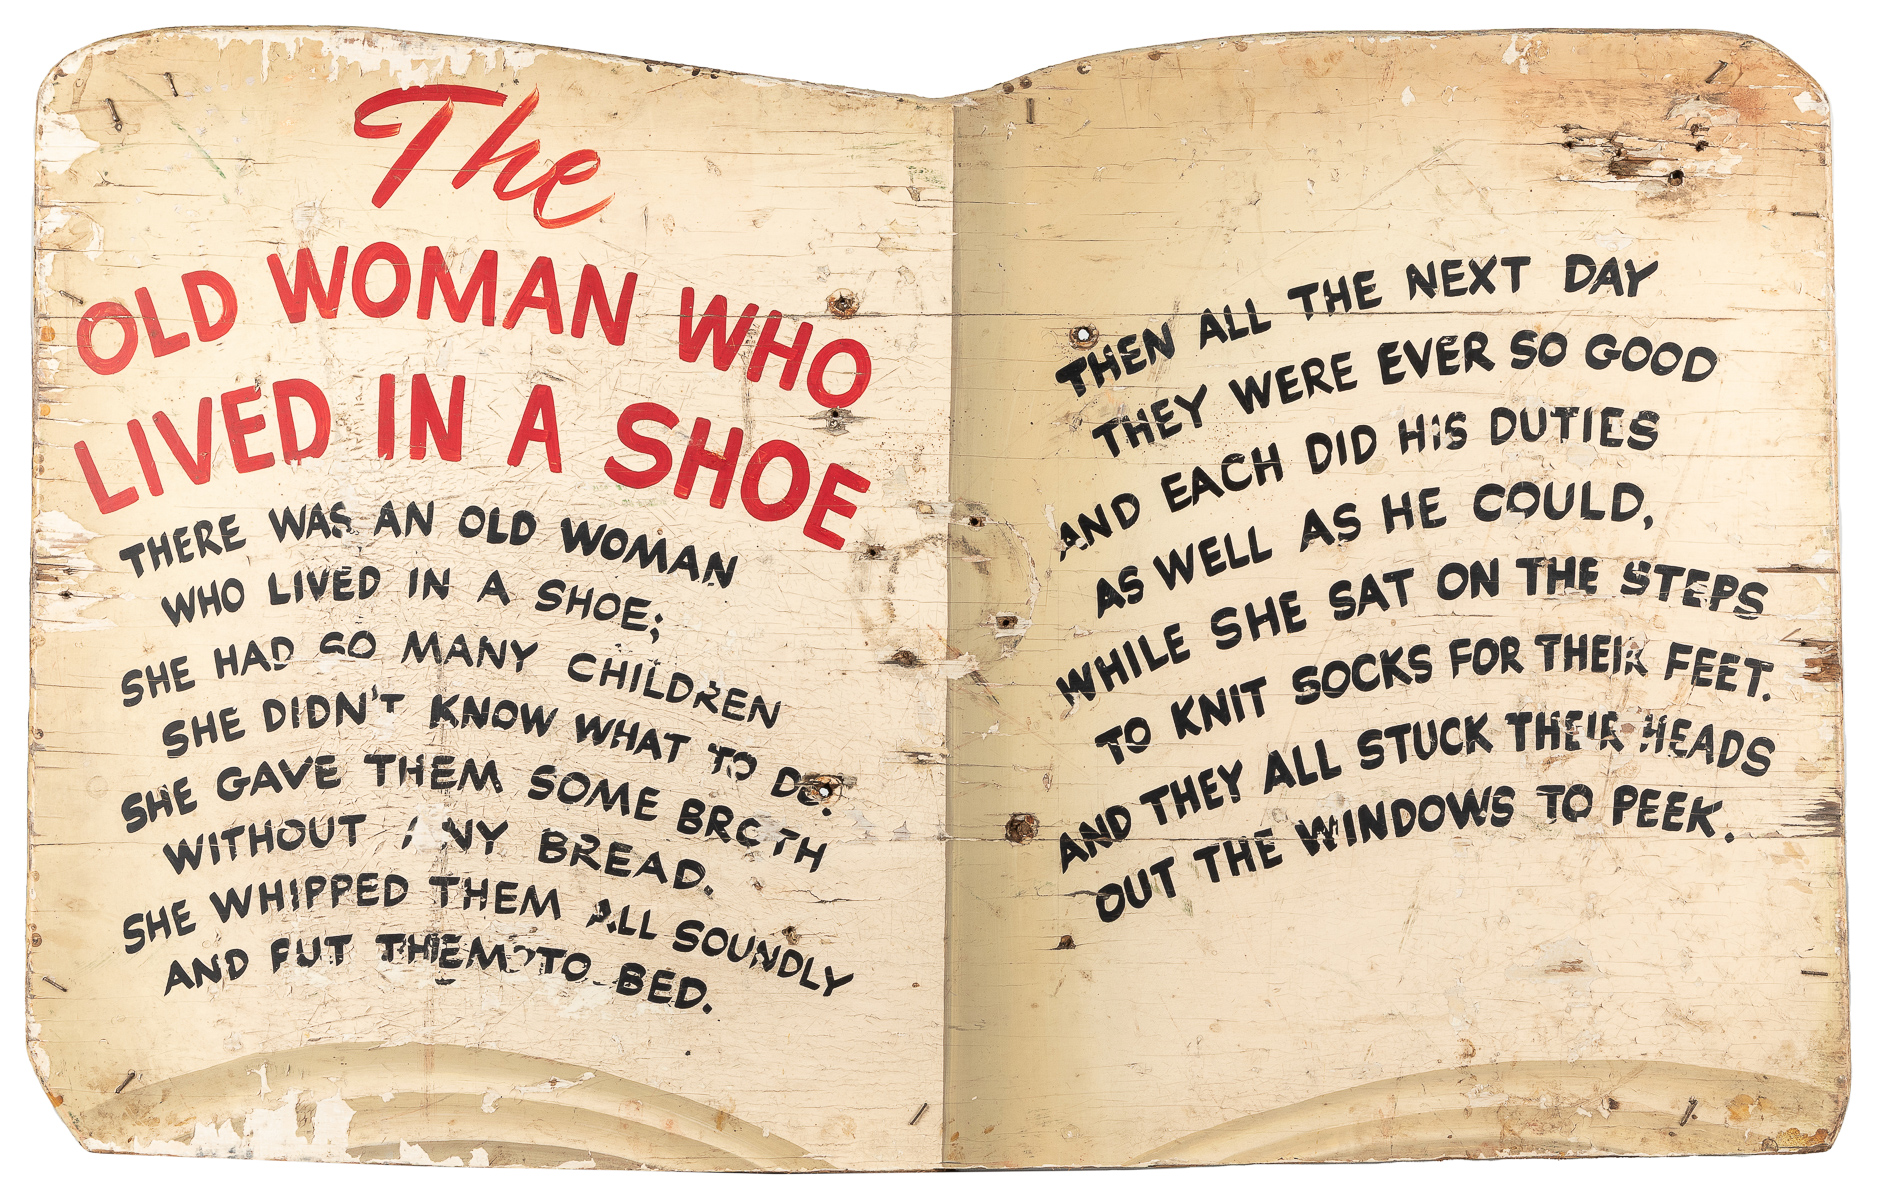 The
OLD WOMAN WHO
LIVED IN A SHOE
THERE WAS AN OLD WOMAN
WHO LIVED IN A SHOE;
SHE HAD SO MANY CHILDREN
SHE DIDN'T KNOW WHAT TO DO.
SHE GAVE THEM SOME BROTH
WITHOUT ANY BREAD.
SHE WHIPPED THEM ALL SOUNDLY
AND PUT THEM TO BED.
THEN ALL THE NEXT DAY
THEY WERE EVER SO GOOD
AND EACH DID HIS DUTIES
AS WELL AS HE COULD,
WHILE SHE SAT ON THE STEPS
TO KNIT SOCKS FOR THEIR FEET.
AND THEY ALL STUCK THEIR HEADS
OUT THE WINDOWS TO PEEK.